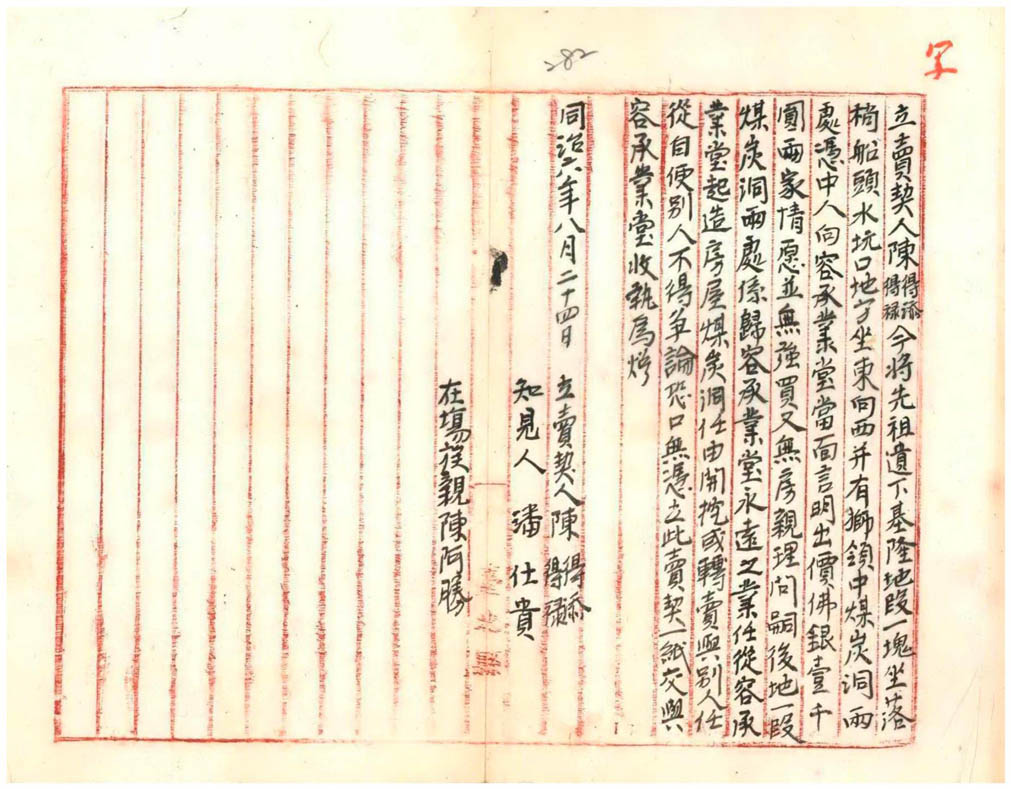 282
立賣契人陳得添得祿今將先祖遺下基隆地段一塊坐落
梢船頭水坑口地方坐東向西并有獅領中煤炭洞兩
處憑中人向容承業堂當面言明出價佛銀壹千
圓兩家情愿並無強買又無房親理问嗣後地一段
煤炭洞兩處係歸容承業堂永遠之業任從容承
業堂起造房屋煤炭洞任由開挖或轉賣與別人任
從自便別人不得争論恐口無憑立此賣契一紙交與
容承業堂收執為炤
同治六年八月二十四日 立賣契人陳得添得祿
知見人 潘仕貴
在塲房親陳阿勝